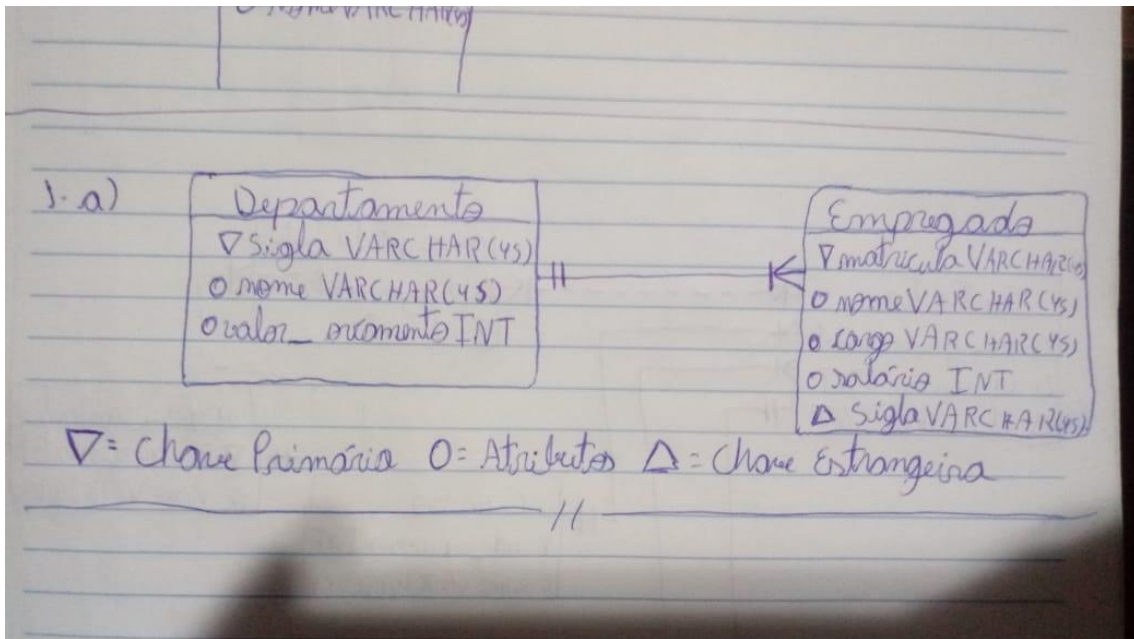 O nome VARCHAR(45)
1. a)
Departamento
∇ Sigla VARCHAR(45)
O nome VARCHAR(45)
O valor_orcamento INT
Empregado
∇ matricula VARCHAR(45)
O nome VARCHAR(45)
O cargo VARCHAR(45)
O salário INT
Δ Sigla VARCHAR(45)
∇ = Chave Primária O = Atributos Δ = Chave Estrangeira